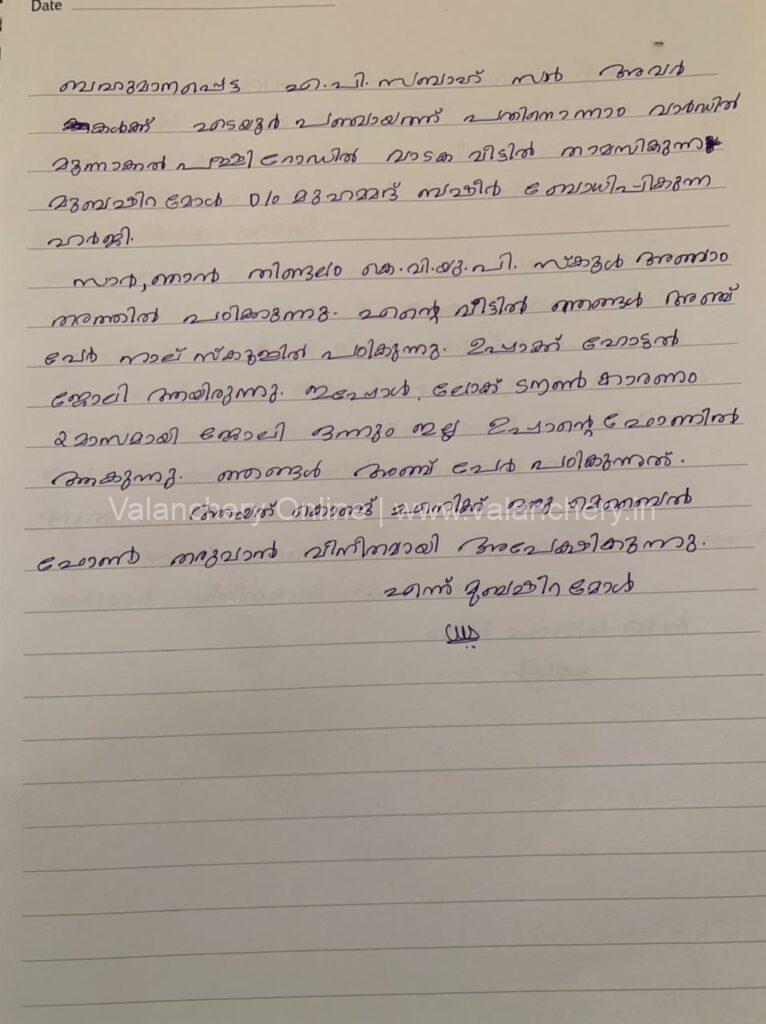 Date
ബഹുമാനപ്പെട്ട എ.പി. സബാഹ് സർ അവർ
കൾക്ക് എടയൂർ പഞ്ചായത്ത് പതിനൊന്നാം വാർഡിൽ
മൂന്നാക്കൽ പള്ളി റോഡിൽ വാടക വീട്ടിൽ താമസികുന്ന
മുബഷിറ മോൾ D/o മുഹമ്മദ് ബഷീർ ബോധിപ്പികുന്ന
ഹർജി.
സാർ, ഞാൻ തിണ്ടലം കെ.വി.യു.പി. സ്കൂൾ അഞ്ചാം
തരത്തിൽ പഠിക്കുന്നു. എന്റെ വീട്ടിൽ ഞങ്ങൾ അഞ്ച്
പേർ നാല് സ്കൂളിൽ പഠികുന്നു. ഉപ്പാക്ക് ഹോട്ടൽ
ജോലി ആയിരുന്നു. ഇപ്പോൾ ലോക് ഡൗൺ കാരണം
2 മാസമായി ജോലി ഒന്നും ഇല്ല ഉപ്പാന്റെ ഫോണിൽ
ആകുന്നു. ഞങ്ങൾ അഞ്ച് പേർ പഠികുന്നത്.
Valanchery Online | www.valanchery.in
അത് കൊണ്ട് എനിക്ക് ഒരു മൊബൈൽ
ഫോൺ തരുവാൻ വിനീതമായി അപേക്ഷികുന്നു.
എന്ന് മുബഷിറ മോൾ